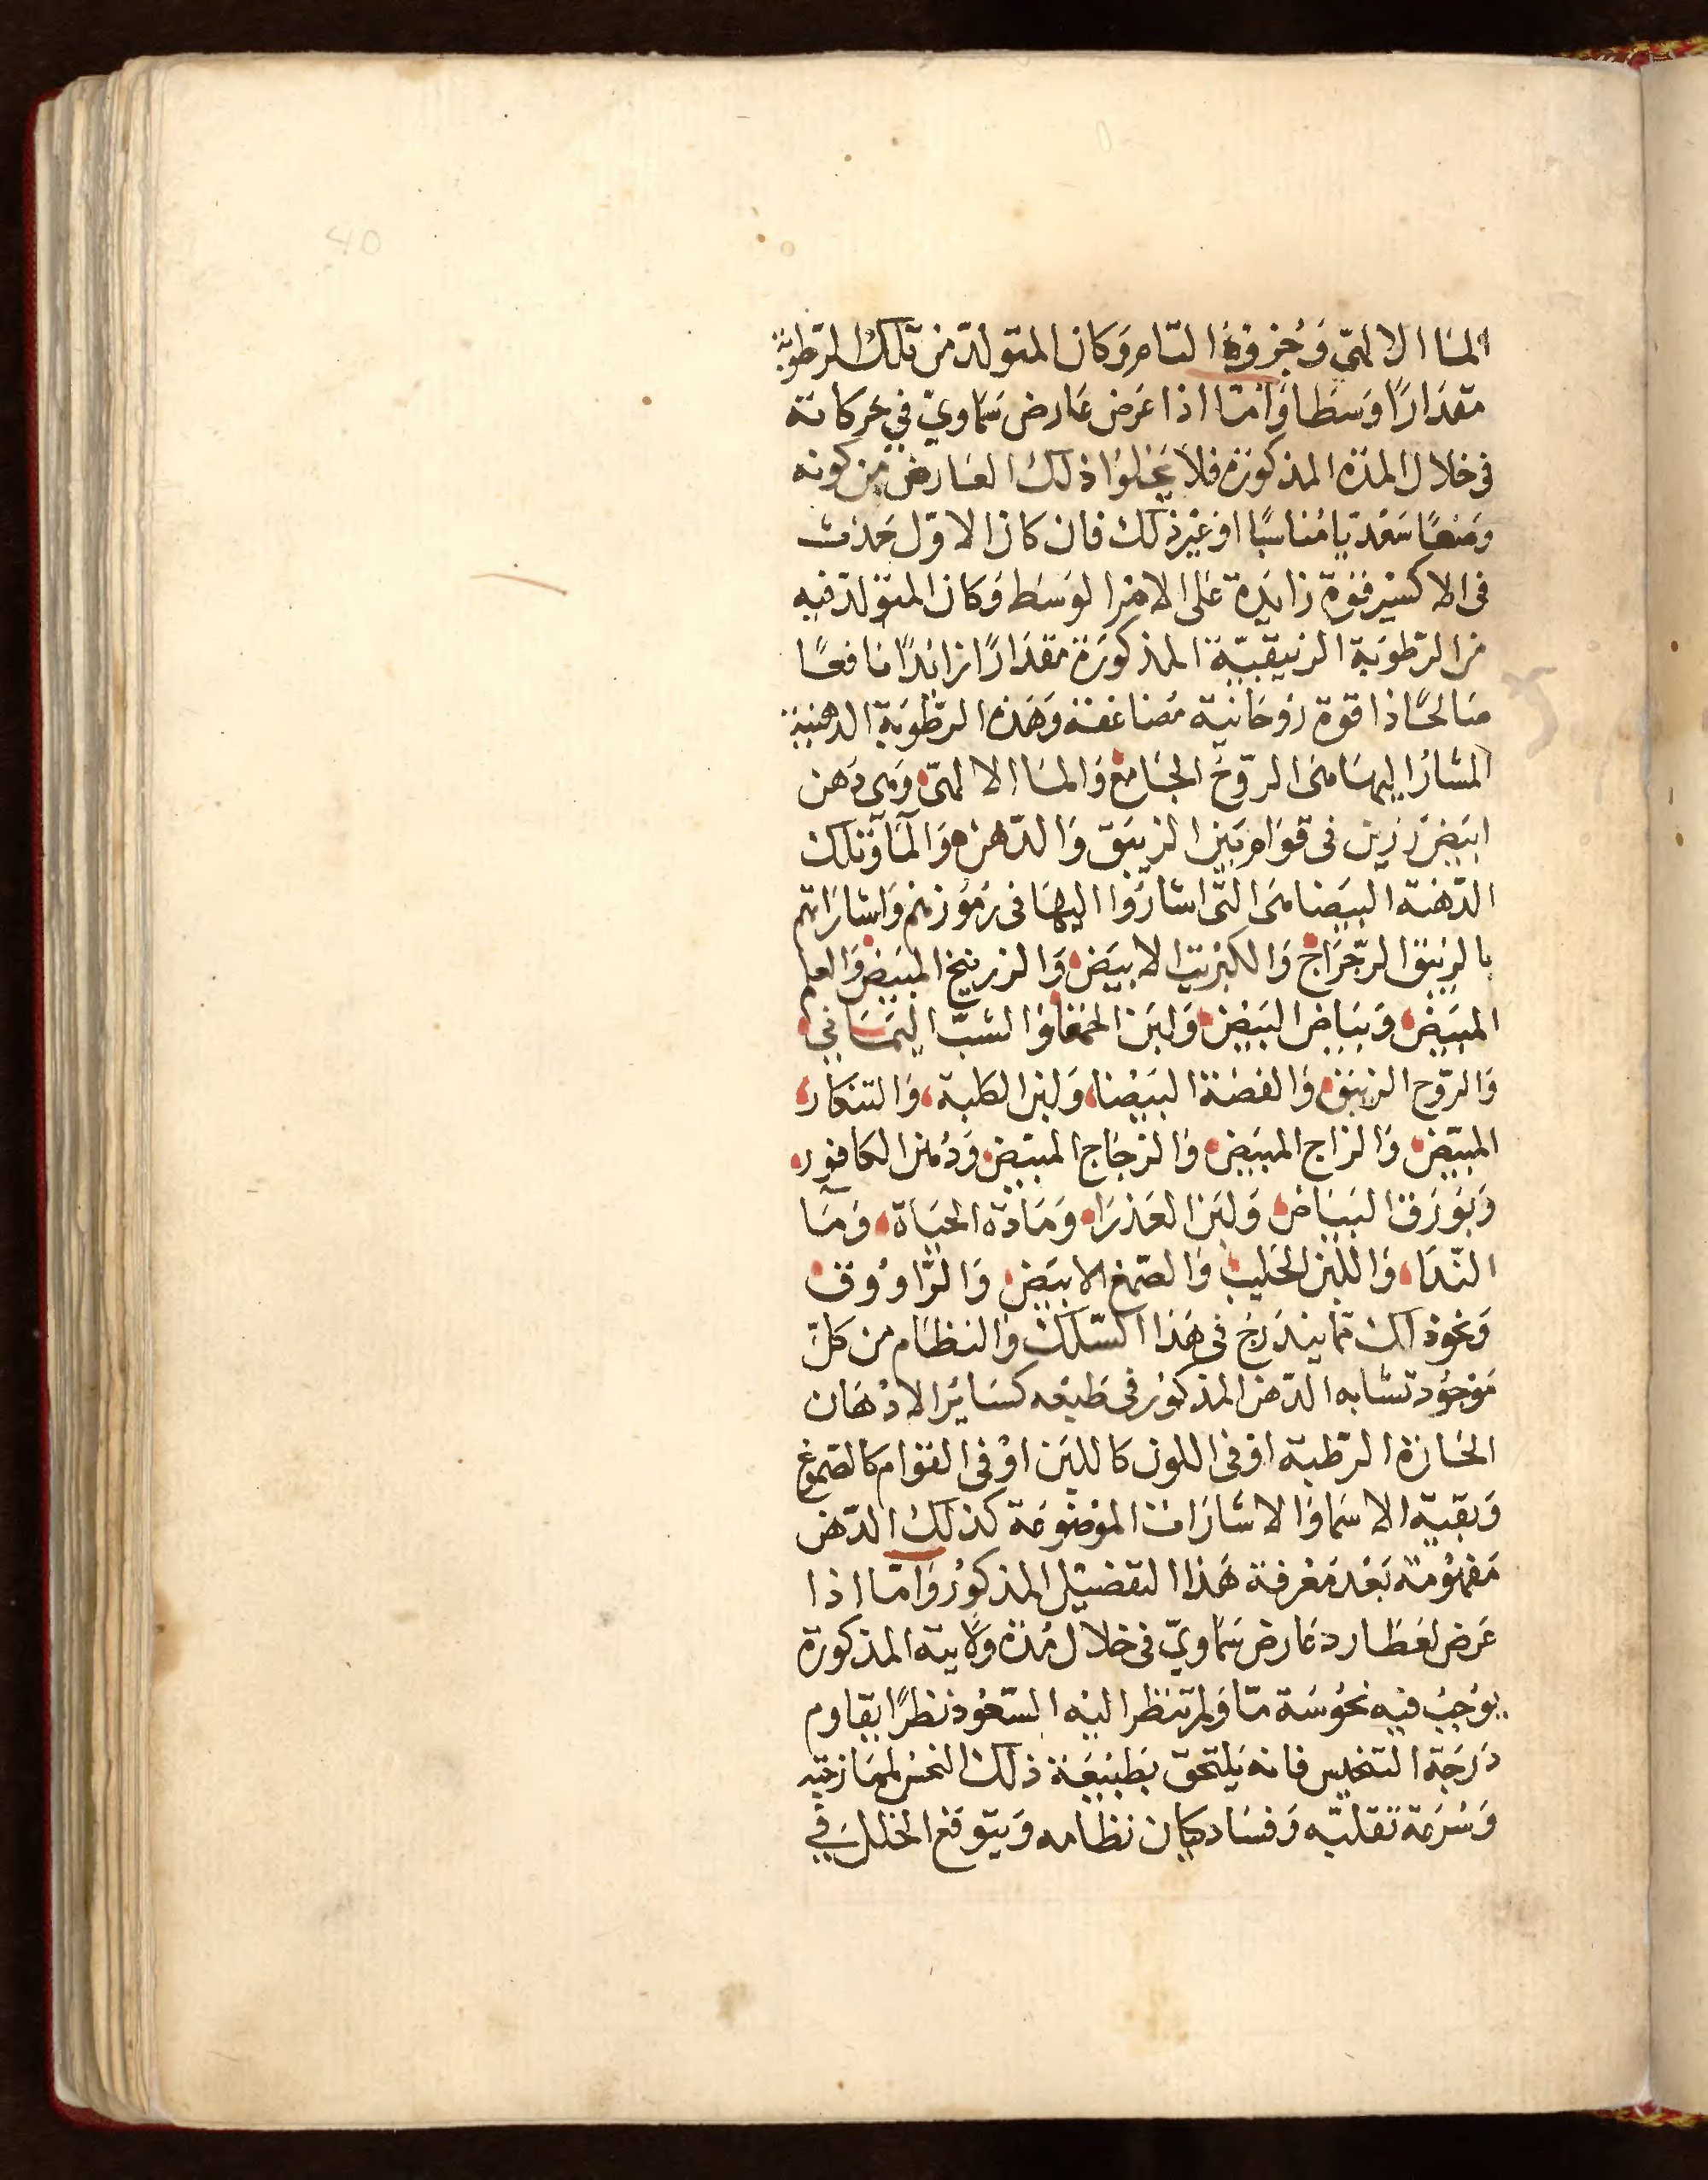 40
الما الالهي وجزوه التام وكان المتولد من تلك الرطوبة
مقدارًا وسطا وامّا اذا عرض عارض سماوي في حركاته
في خلال المدة المذكورة فلا يخلوا ذلك العارض من كونه
وضعًا سعديا مناسبًا او غير ذلك فان كان الاول حدث
في الاكسير قوة زايدة على الامر الوسط وكان المتولد فيه
من الرطوبة الزيبقيّة المذكورة مقدارًا زائدًا نافعًا
صالحًا ذا قوة روحانية مضاعفة وهذه الرطوبة الدهنية
المشار اليها هي الروح الجامع والما الالهي وهي دهن
ابيض رزين في قوام بين الزيبق والدهن والمآ وتلك
الدهنة البيضا هي التي اشاروا اليها في رموزهم واشاراتهم
بالزيبق الرجراج والكبريت الابيض والزرنيخ المبيض والعلم
المبيض وبياض البيض ولبن الحمقا والشب اليماني
والروح الزيبق والفضة البيضا ولبن الكلبة والتنكار
المبيّض والزاج المبيض والزجاج المبيض ودهن الكافور
وبورق البياض ولبن العذرا ومادة الحياة ومآ
الندا واللبن الحليب والصمغ الابيض والراووق
ونحو ذلك مما يندرج في هذا السلك والنظام من كلّ
موجود تشابه الدهن المذكور في طبعه كساير الادهان
الحارة الرطبة او في اللون كاللبن او في القوام كالصموغ
وبقية الاسما والاشارات الموضوعة كذلك الدهن
مفهومة بعد معرفة هذا التفصيل المذكور وامّا اذا
عرض لعطارد عارض سماوي في خلال مدة ولايته المذكورة
يوجب فيه نحوسة ما ولم تنظر اليه السعود نظرًا يقاوم
درجة التنحيس فانه يلتحق بطبيعة ذلك النحس لممازجته
وسرعة تقلبه وفساد كيان نظامه ويتوقع الخلل في